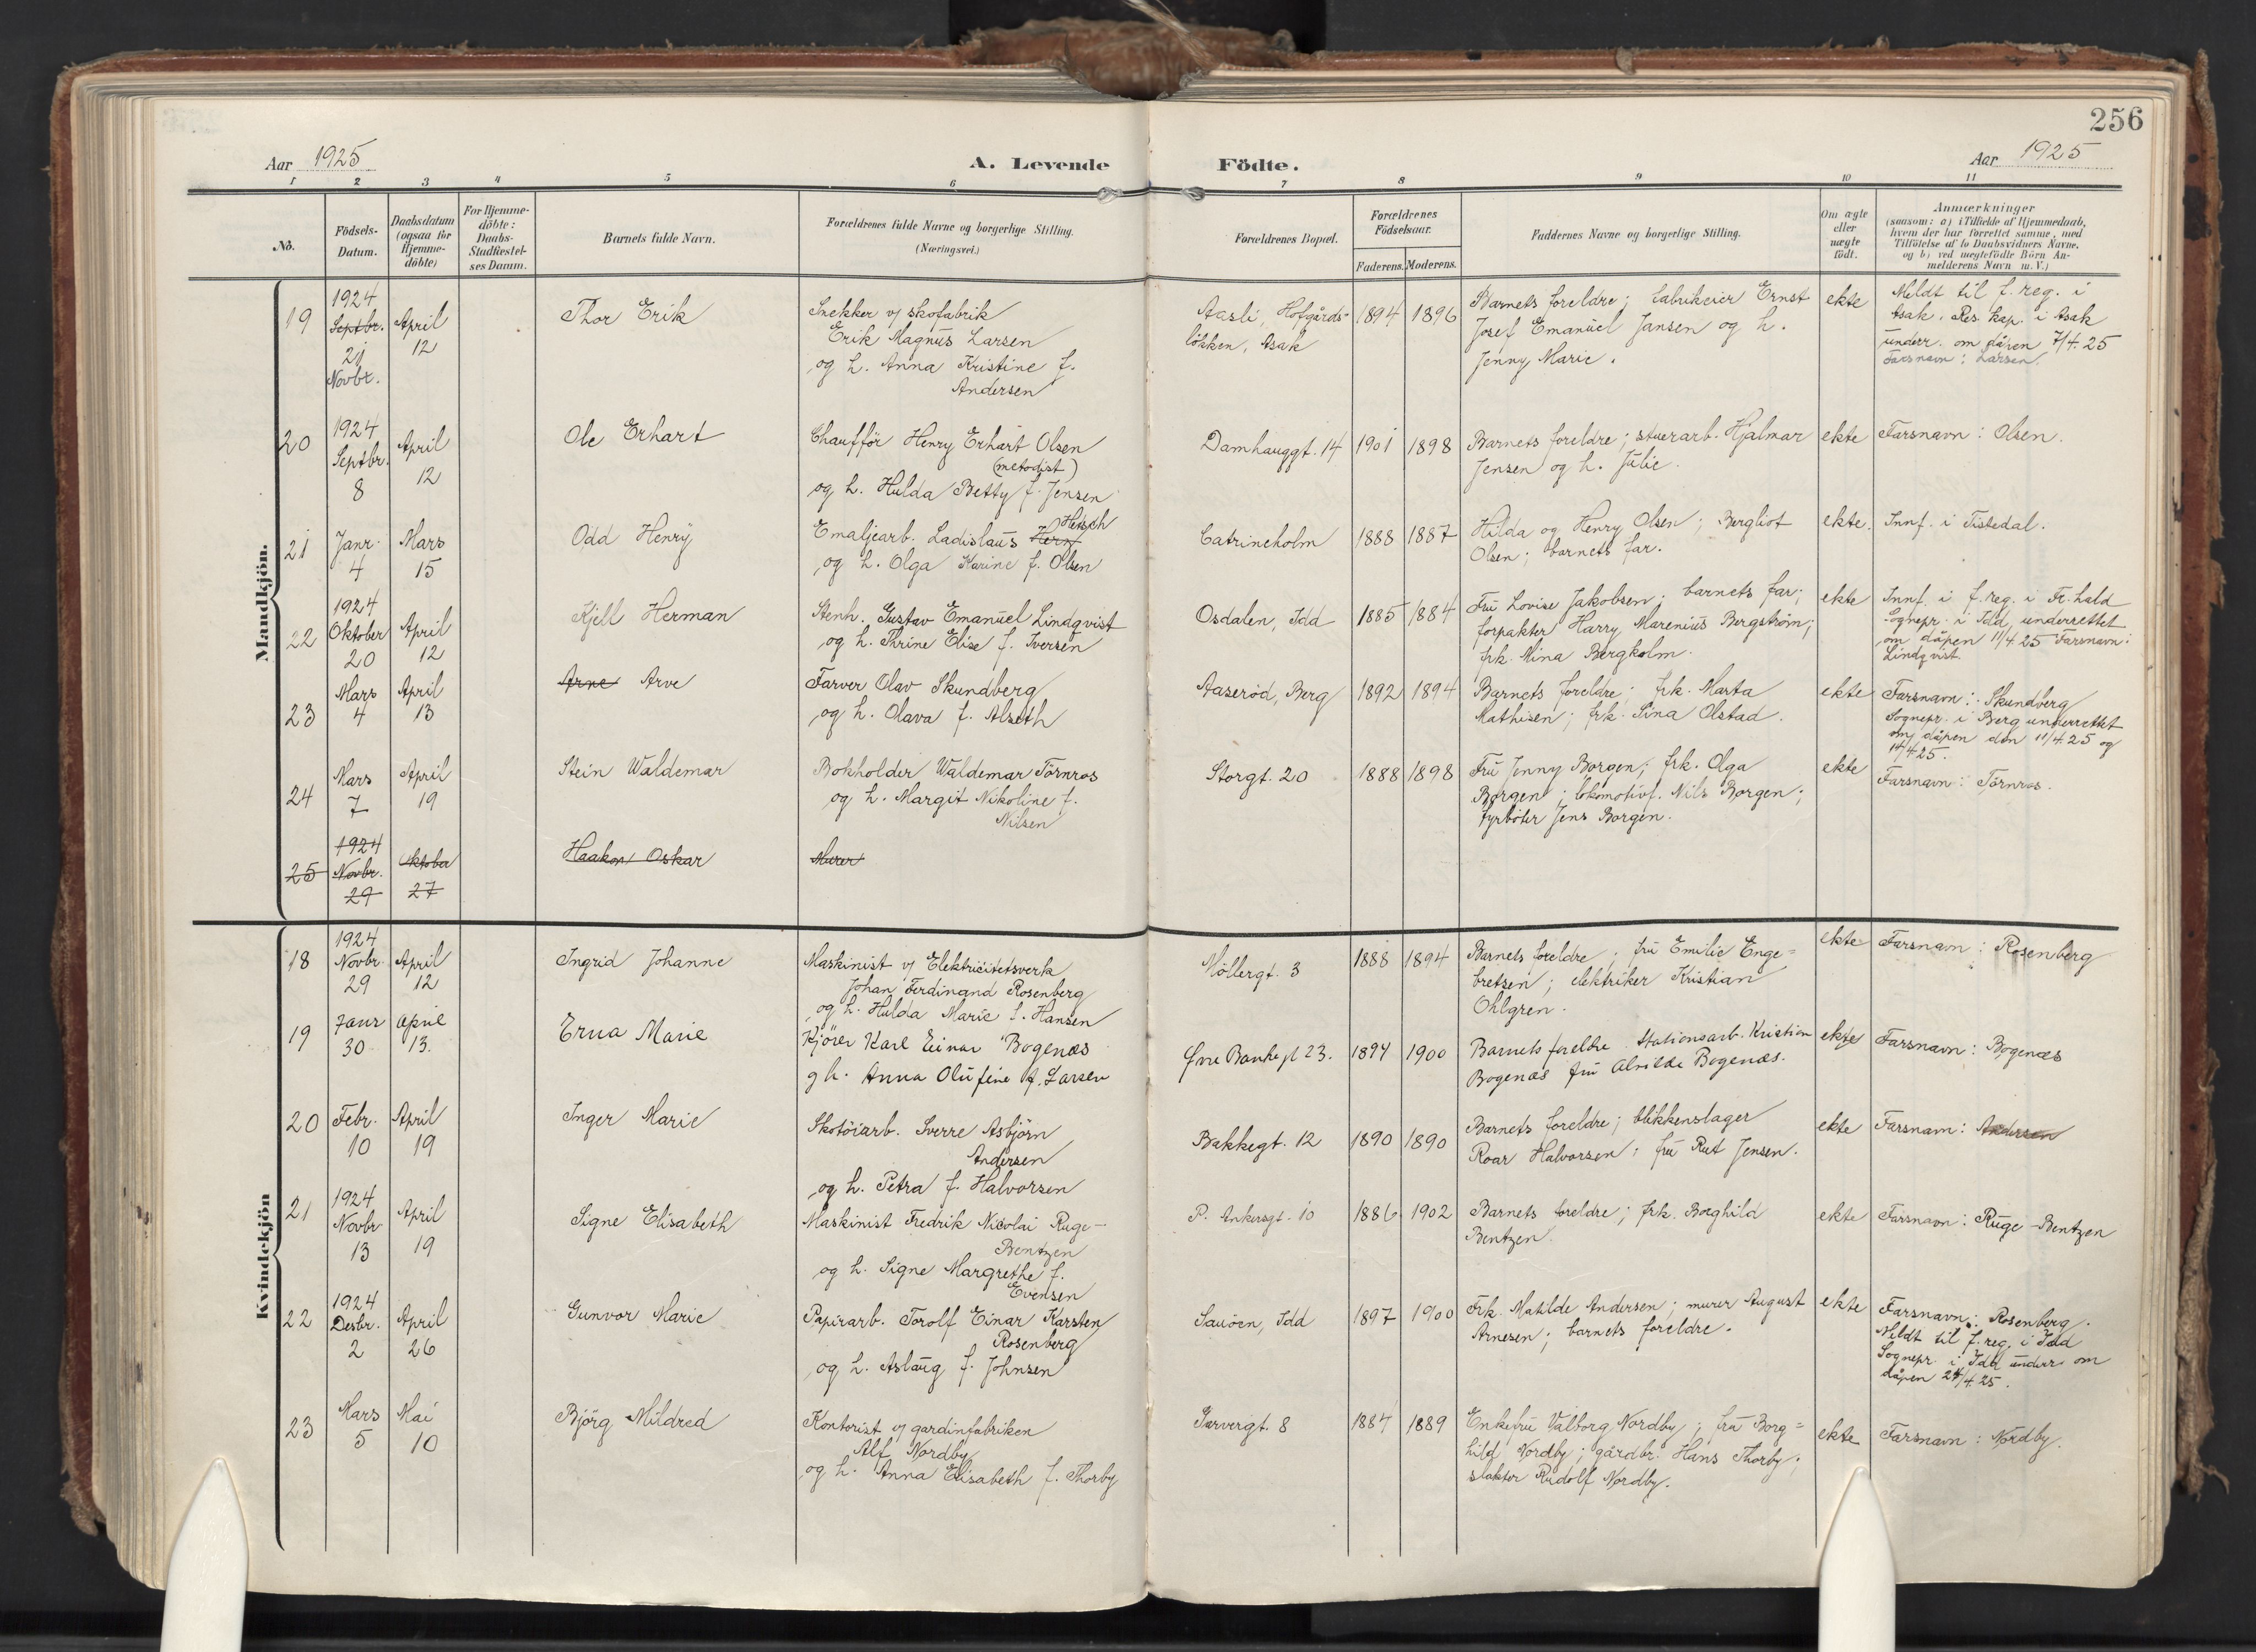 256
Aar 1925
A. Levende
Födte.
Aar 1925
1 2 3 4 5 6 7 8 9 10 11
No.
Födsels-
Datum.
Daabsdatum
(ogsaa for
Hjemme-
döbte)
For Hjemme-
döbte:
Daabs-
Stadfæstel-
ses Datum.
Barnets fulde Navn.
Forældrenes fulde Navne og borgerlige Stilling.
(Næringsvei.)
Forældrenes Bopæl.
Forældrenes
Födselsaar.
Faderens. Moderens.
Faddernes Navne og borgerlige Stilling.
Om ægte
eller
uægte
födt.
Anmærkninger
(saasom: a) i Tilfælde af Hjemmedaab,
hvem der har forrettet samme, med
Tilföielse af to Daabsvidners Navne,
og b) ved uægtefödte Börn An-
melderens Navn m. V.)
Mandkjön.
19
1924
Septbr.
21
Novbr.
April
12
Thor Erik
Snekker v/ skofabrik
Erik Magnus Larsen
og h. Anna Kristine f.
Andersen
Aasli, Hofgårds-
løkken, Asak
1894
1896
Barnets foreldre; fabrikeier Ernst
Josef Emanuel Jansen og h.
Jenny Marie.
ekte
Meldt til f. reg. i
Asak. Res. kap. i Asak
underr. om dåpen 7/4.25
Farsnavn: Larsen.
20
1924
Septbr.
8
April
12
Ole Erhart
Chaufför Henry Erhart Olsen
(metodist)
og h. Hulda Betty f. Jensen
Damhauggt. 14
1901
1898
Barnets foreldre; stuerarb. Hjalmar
Jensen og h. Julie.
ekte
Farsnavn: Olsen.
21
Janr.
4
Mars
15
Odd Henry
Hetsch
Emaljearb. Ladislaus Hern
og h. Olga Karine f. Olsen
Catrineholm
1888
1887
Hilda og Henry Olsen; Bergliot
Olsen; barnets far.
ekte.
Innf. i Tistedal.
22
1924
Oktober
20
April
12
Kjell Herman
Stenh. Gustav Emanuel Lindqvist
og h. Thrine Elise f. Iversen
Osdalen, Idd
1885
1884
Fru Lovise Jakobsen; barnets far;
forpakter Harry Marenius Bergström;
frk. Mina Bergholm.
ekte
Innf. i f. reg. i Fr.hald
Sognepr. i Idd underrettet
om dåpen 11/4 25 Farsnavn:
Lindqvist.
23
Mars
4
April
13
Arne Arve
Farver Olav Skundberg
og h. Olava f. Alseth
Aaseröd, Berg
1892
1894
Barnets foreldre; frk. Marta
Mathisen; frk. Sina Olstad.
ekte
Farsnavn: Skundberg
Sognepr. i Berg underrettet
om dåpen den 11/4.25 og
14/4 25.
24
Mars
7
April
19
Stein Waldemar
Bokholder Waldemar Törnros
og h. Margit Nikoline f.
Nilsen
Storgt. 20
1888
1898
Fru Jenny Borgen; frk. Olga
Borgen; lokomotivf. Nils Borgen;
fyrböter Jens Borgen.
ekte
Farsnavn: Törnros.
25
1924
Novbr.
29
Oktober
27
Haakon Oskar
Murer
Kvindekjön
18
1924
Novbr.
29
April
12
Ingrid Johanne
Maskinist v/ Elektricitetsverk
Johan Ferdinand Rosenberg
og h. Hulda Marie f. Hansen
Möllergt. 3
1888
1894
Barnets foreldre; fru Emilie Enge=
bretsen; elektriker Kristian
Ohlgren.
ekte
Farsnavn: Rosenberg
19
Janr
30
April
13.
Erna Marie
Kjörer Karl Einar Bogenæs
g h. Anna Olufine f. Larsen
Øvre Bankegt 23.
1894
1900
Barnets forelbre Stationsarb. Kristian
Bogenæs fru Alvilde Bogenæs.
ekte
Farsnavn: Bogenæs
20
Febr.
10
April
19
Inger Marie
Skotöiarb. Sverre Asbjörn
Andersen
og h. Petra f. Halvorsen
Bakkegt. 12
1890
1890
Barnets foreldre; blikkenslager
Roar Halvorsen; fru Rut Jensen.
ekte
Farsnavn: Andersen
21
1924
Novbr
13
April
19
Signe Elisabeth
Maskinist Fredrik Nicolai Ruge-
Bentzen
og h. Signe Margrethe f.
Evensen
P. Ankersgt. 10
1886
1902
Barnets foreldre; frk. Borghild
Bentzen.
ekte
Farsnavn: Ruge-Bentzen
22
1924
Desbr.
2
April
26
Gunvor Marie
Papirarb. Torolf Einar Karsten
Rosenberg
og h. Aslaug f. Johnsen
Sauöen, Idd
1897
1900
Frk. Matilde Andersen; murer August
Arnesen; barnets foreldre.
ekte
Farsnavn: Rosenberg.
Meldt til f. reg. i Idd
Sognepr. i Idd underr. om
dåpen 24/4 25.
23
Mars
5
Mai
10
Björg Mildred
Kontorist v/ gardinfabriken
Alf Nordby
og h. Anna Elisabeth f. Thorby
Garvergt. 8
1884
1889
Enkefru Valborg Nordby; fru Borg=
hild Nordby; gårdbr. Hans Thorby;
slakter Rudolf Nordby.
ekte
Farsnavn: Nordby.